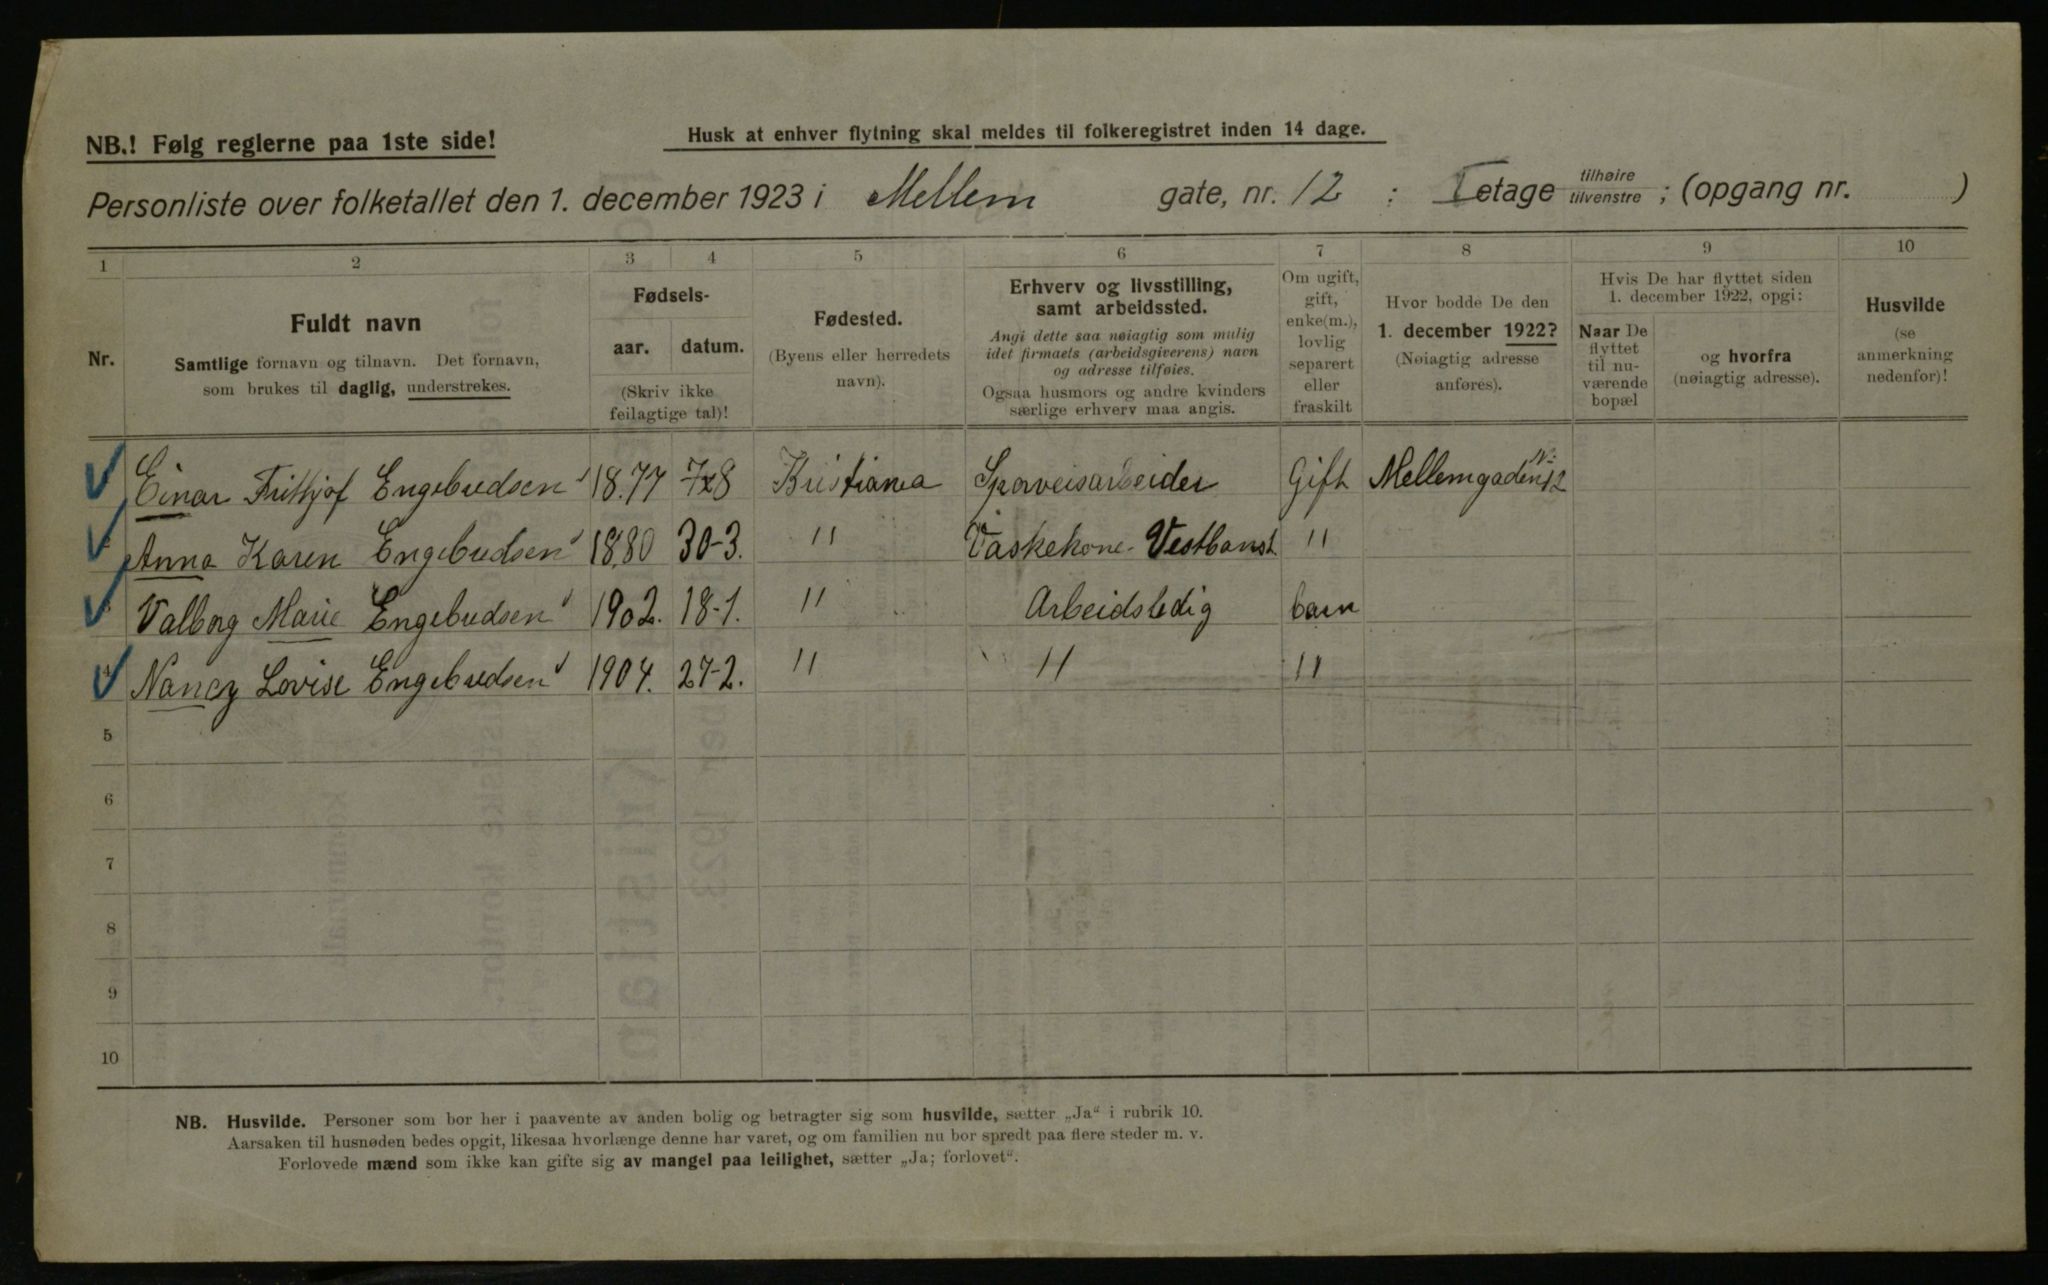 NB.! Følg reglerne paa 1ste side!
Husk at enhver flytning skal meldes til folkeregistret inden 14 dage.
Personliste over folketallet den 1. december 1923 i Mellem gate, nr. 12 : I etage tilhøire tilvenstre ; (opgang nr. )
1 2 3 4 5 6 7 8 9 10
Nr.
Fuldt navn
Samtlige fornavn og tilnavn. Det fornavn,
som brukes til daglig, understrekes.
Fødsels-
aar. datum.
(Skriv ikke
feilagtige tal)!
Fødested.
(Byens eller herredets
navn).
Erhverv og livsstilling,
samt arbeidssted.
Angi dette saa nøiagtig som mulig
idet firmaets (arbeidsgiverens) navn
og adresse tilføies.
Ogsaa husmors og andre kvinders
særlige erhverv maa angis.
Om ugift,
gift,
enke(m.),
lovlig
separert
eller
fraskilt
Hvor bodde De den
1. december 1922?
(Nøiagtig adresse
anføres).
Hvis De har flyttet siden
1. december 1922, opgi:
Naar De
flyttet
til nu-
værende
bopæl
og hvorfra
(nøiagtig adresse).
Husvilde
(se
anmerkning
nedenfor)!
Einar Frithjof Engebredsen 1877 7-8 Kristiania Sporveisarbeider Gift Mellemgaden Nr. 12
Anna Karen Engebredsen 1880 30-3. " Vaskekone Vestbanst "
3 Valborg Marie Engebredsen 1902. 18-1. " Arbeidsledig barn
4 Nancy Lovise Engebredsen 1904. 27-2. " " "
5
6
7
8
9
10
NB. Husvilde. Personer som bor her i paavente av anden bolig og betragter sig som husvilde, sætter „Ja“ i rubrik 10.
Aarsaken til husnøden bedes opgit, likesaa hvorlænge denne har varet, og om familien nu bor spredt paa flere steder m. v.
Forlovede mænd som ikke kan gifte sig av mangel paa leilighet, sætter „Ja; forlovet“.